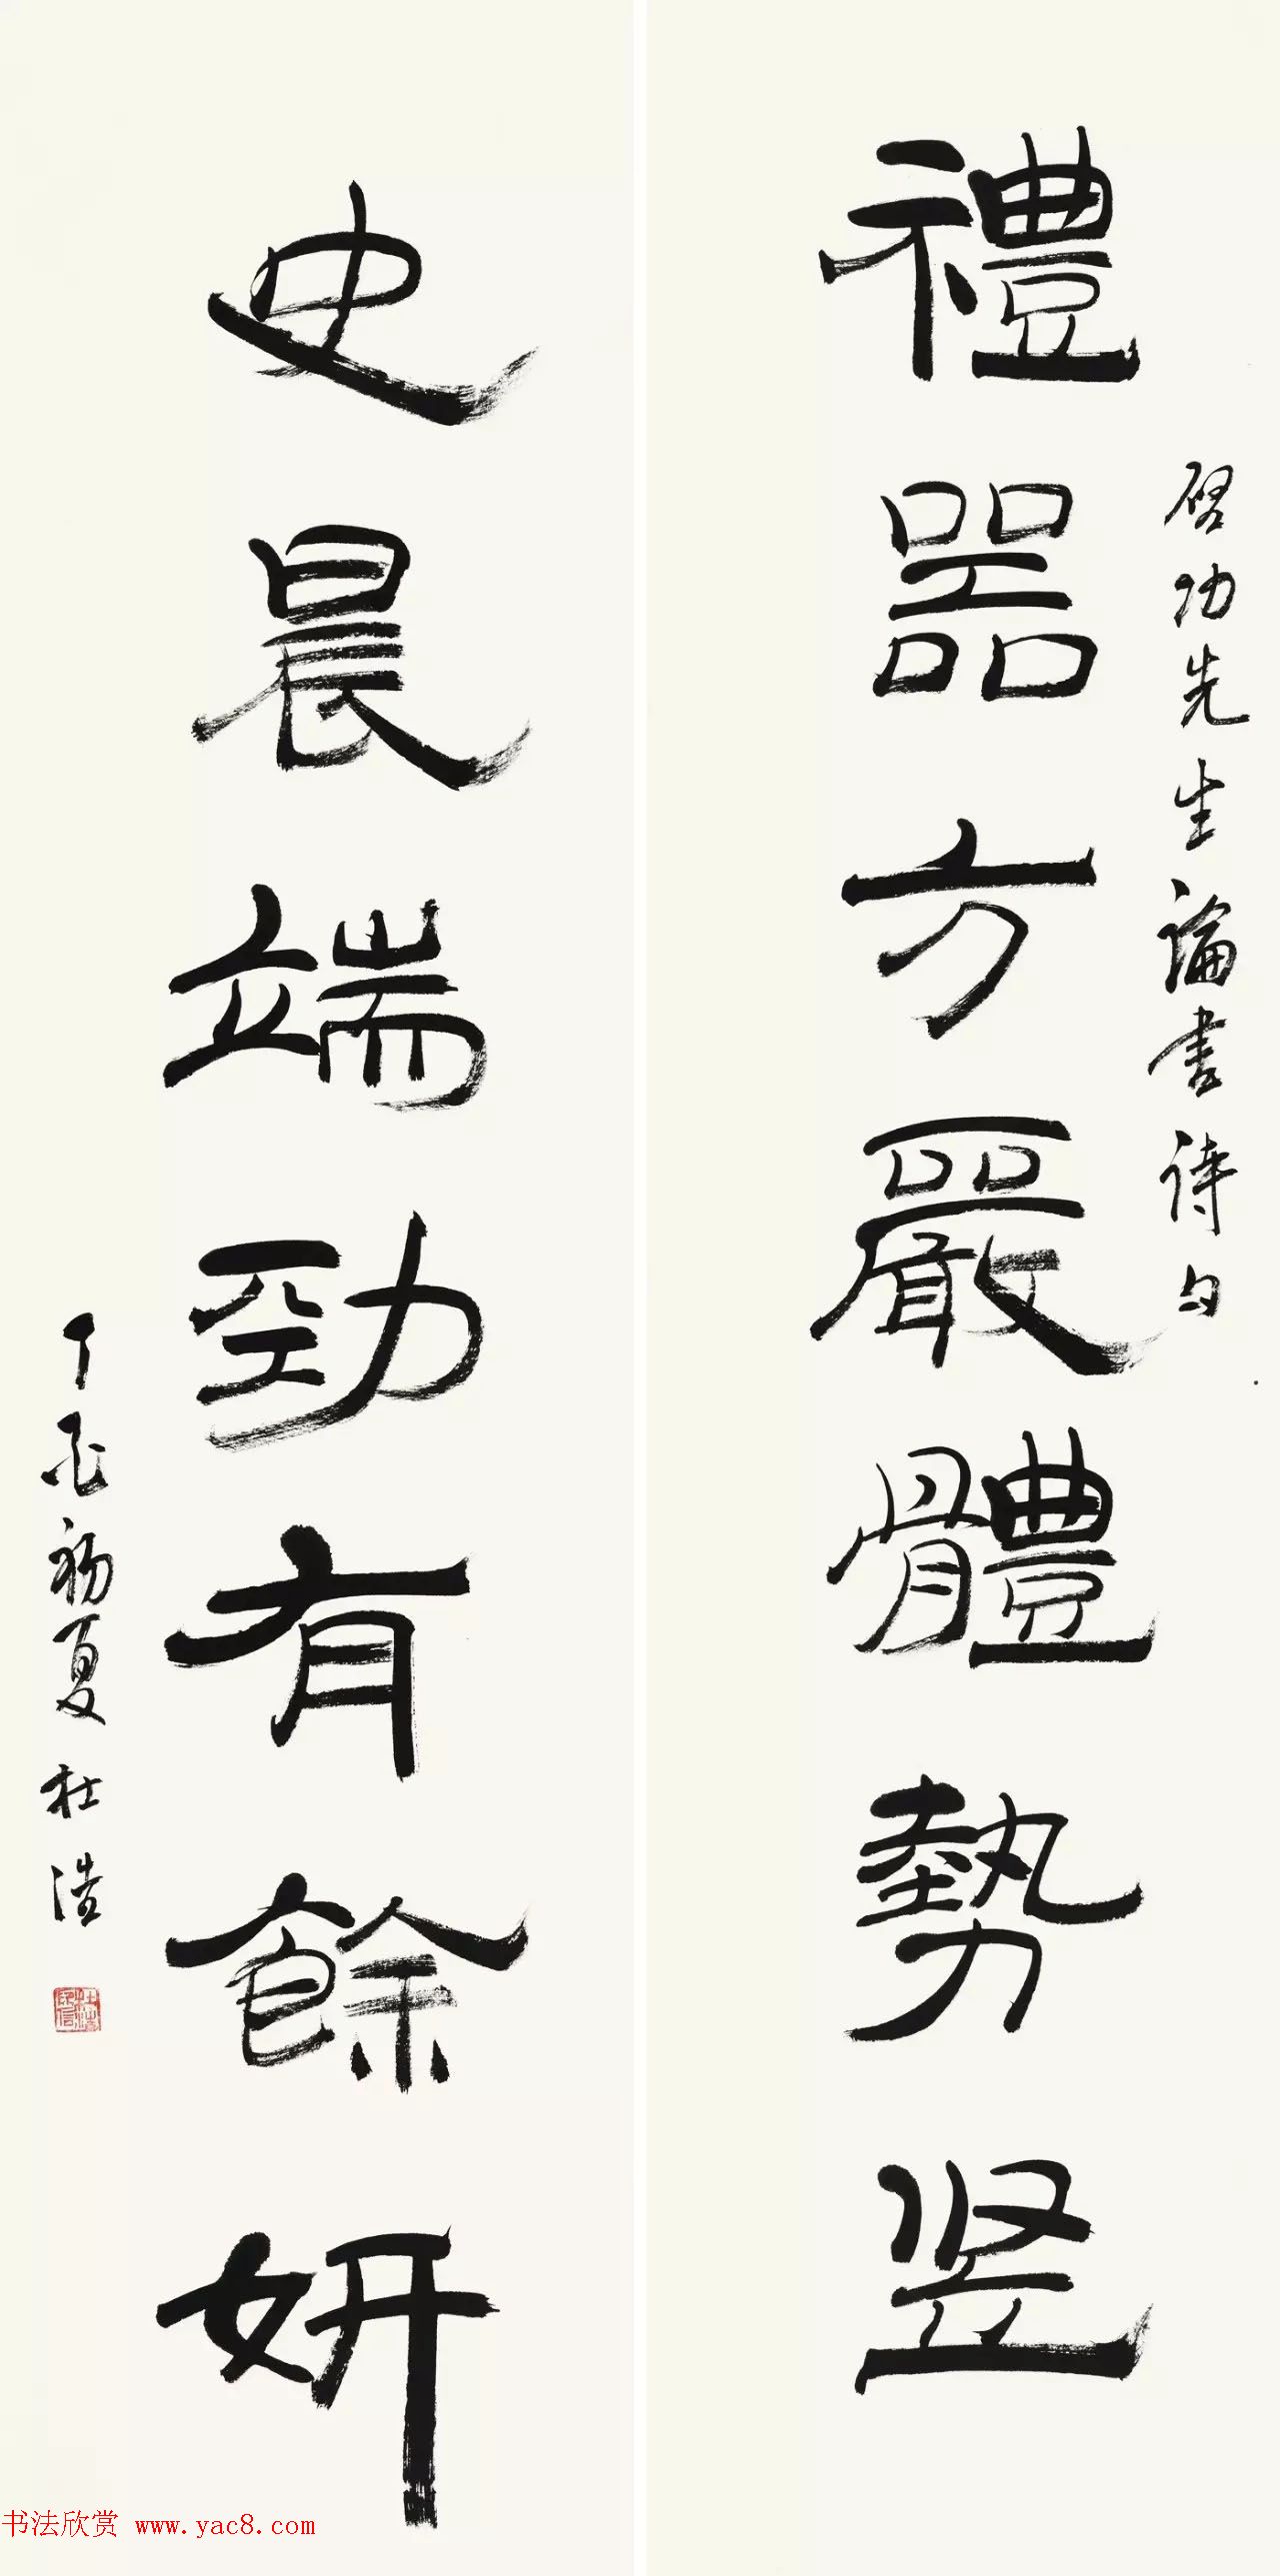 禮器方嚴體勢竖
啓功先生論書詩句
史晨端勁有餘妍
丁酉初夏杜浩
书法欣赏 www.yac8.com